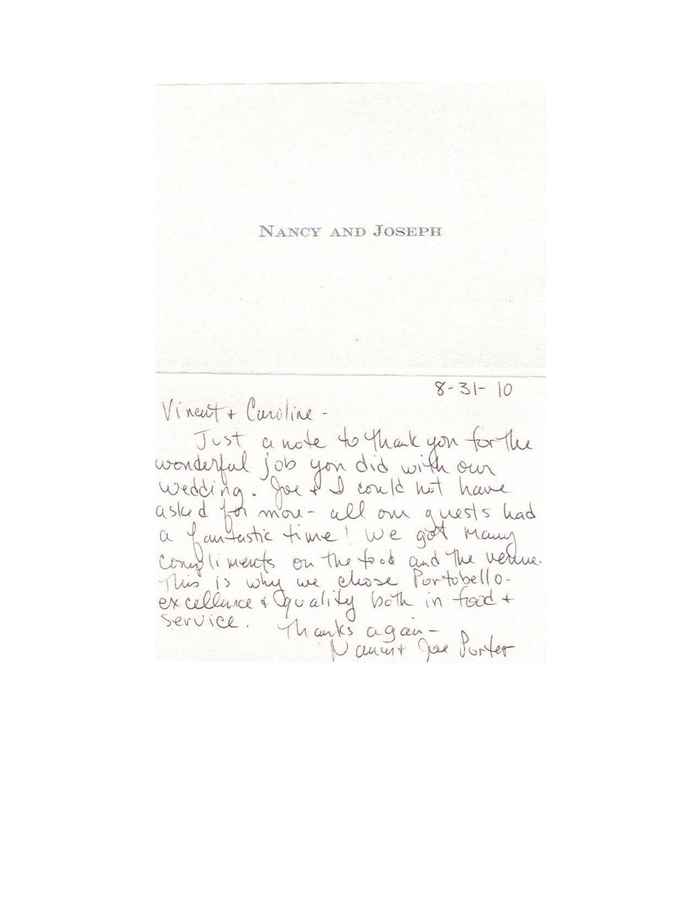 NANCY AND JOSEPH
8-31-10
Vincent + Caroline -
Just a note to thank you for the
wonderful job you did with our
wedding. Joe + I could not have
asked for more - all our guests had
a fantastic time! We got many
compliments on the food and the venue.
This is why we chose Portobello -
excellence + quality both in food +
service. Thanks again -
Nancy + Joe Porter